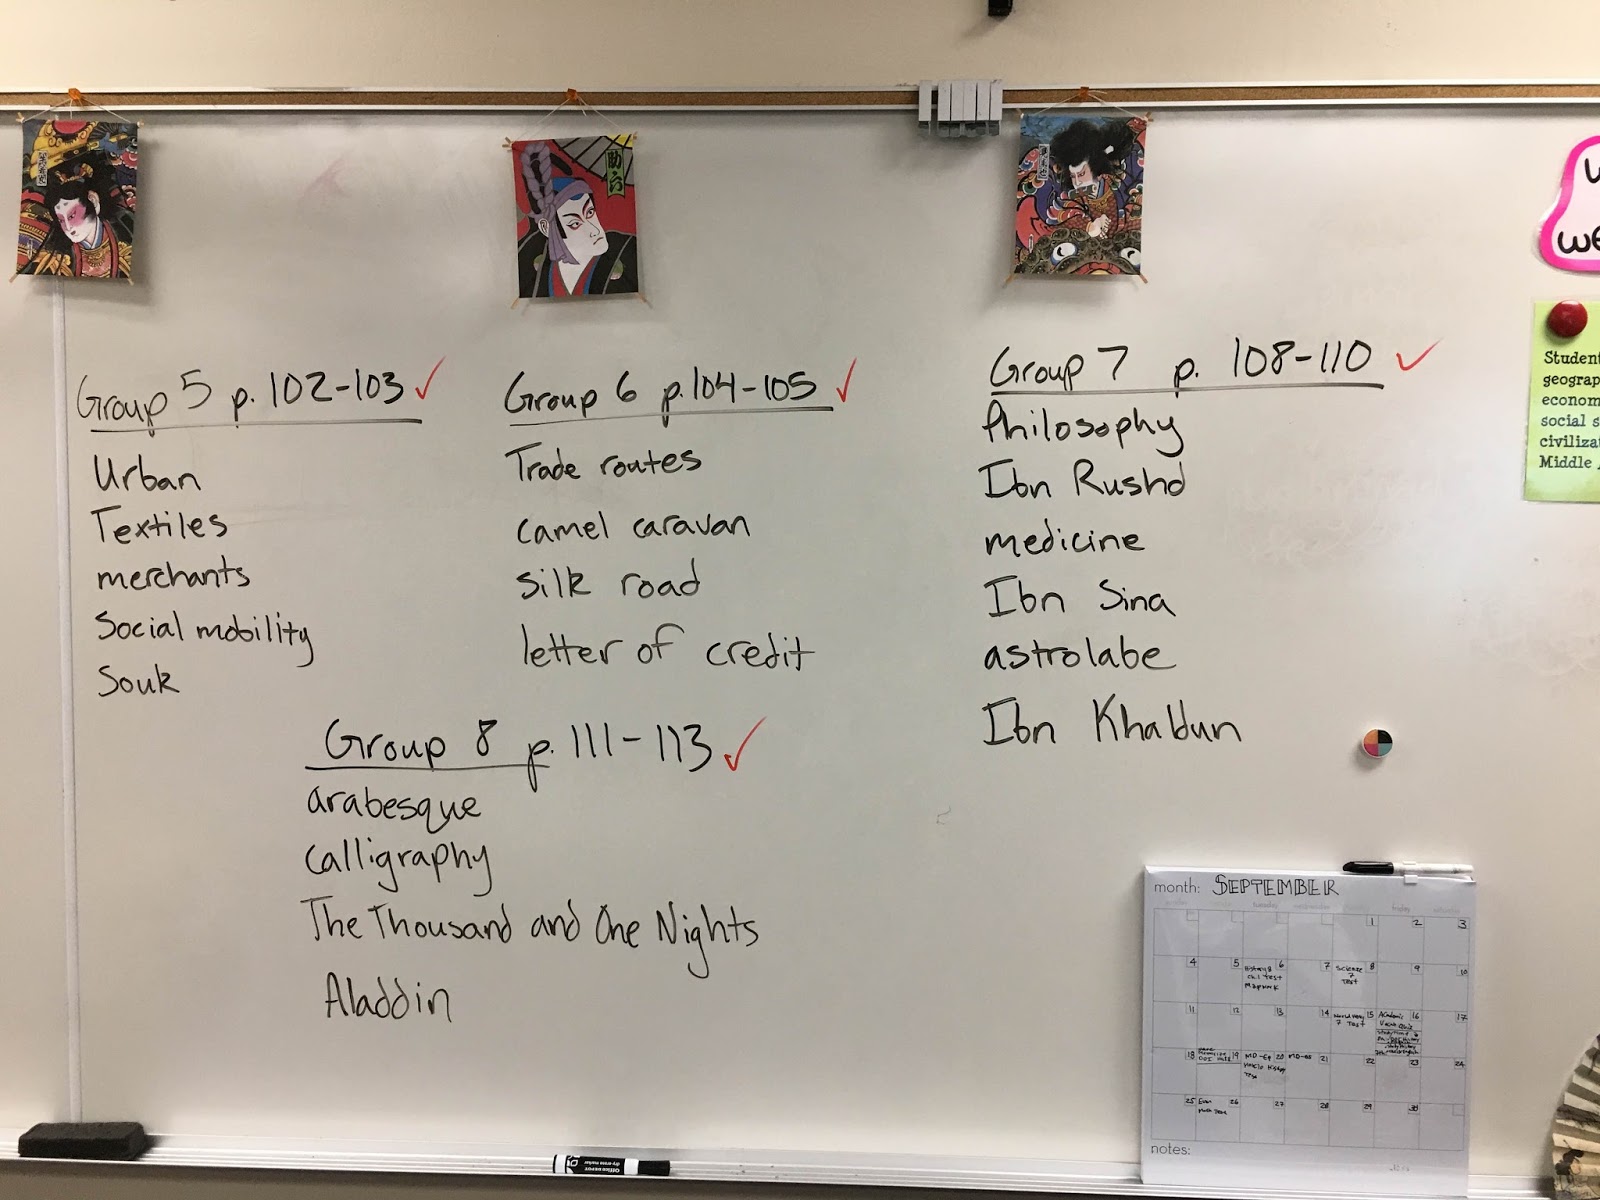 助六
Group 5 p. 102-103 ✓
Urban
Textiles
merchants
Social mobility
Souk
Group 6 p. 104-105 ✓
Trade routes
camel caravan
silk road
letter of credit
Group 7 p. 108-110 ✓
Philosophy
Ibn Rushd
medicine
Ibn Sina
astrolabe
Ibn Khaldun
Group 8 p. 111-113 ✓
arabesque
calligraphy
The Thousand and One Nights
Aladdin
Student
geograp
econom
social s
civiliza
Middle
month: SEPTEMBER
1 2 3
4 5 6 7 8 9 10
Science
7
Test
11 12 13 14 15 16 17
18 19 20 21 22 23 24
25 26 27 28 29 30
notes:
Office DEPOT
dry-erase marker